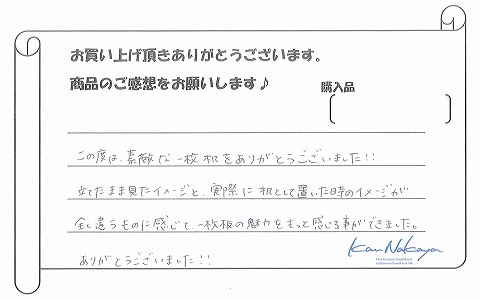 お買い上げ頂きありがとうございます。
商品のご感想をお願いします♪
購入品
この度は、素敵な一枚机をありがとうございました!!
立てたまま見たイメージと、実際に机として置いた時のイメージが
全く違うものに感じて、一枚板の魅力をもっと感じる事ができました。
ありがとうございました!!
Kan Nakaya